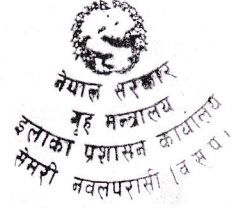 नेपाल सरकार
गृह मन्त्रालय
इलाका प्रशासन कार्यालय
सेमरी नवलपरासी (व.सु.प.)